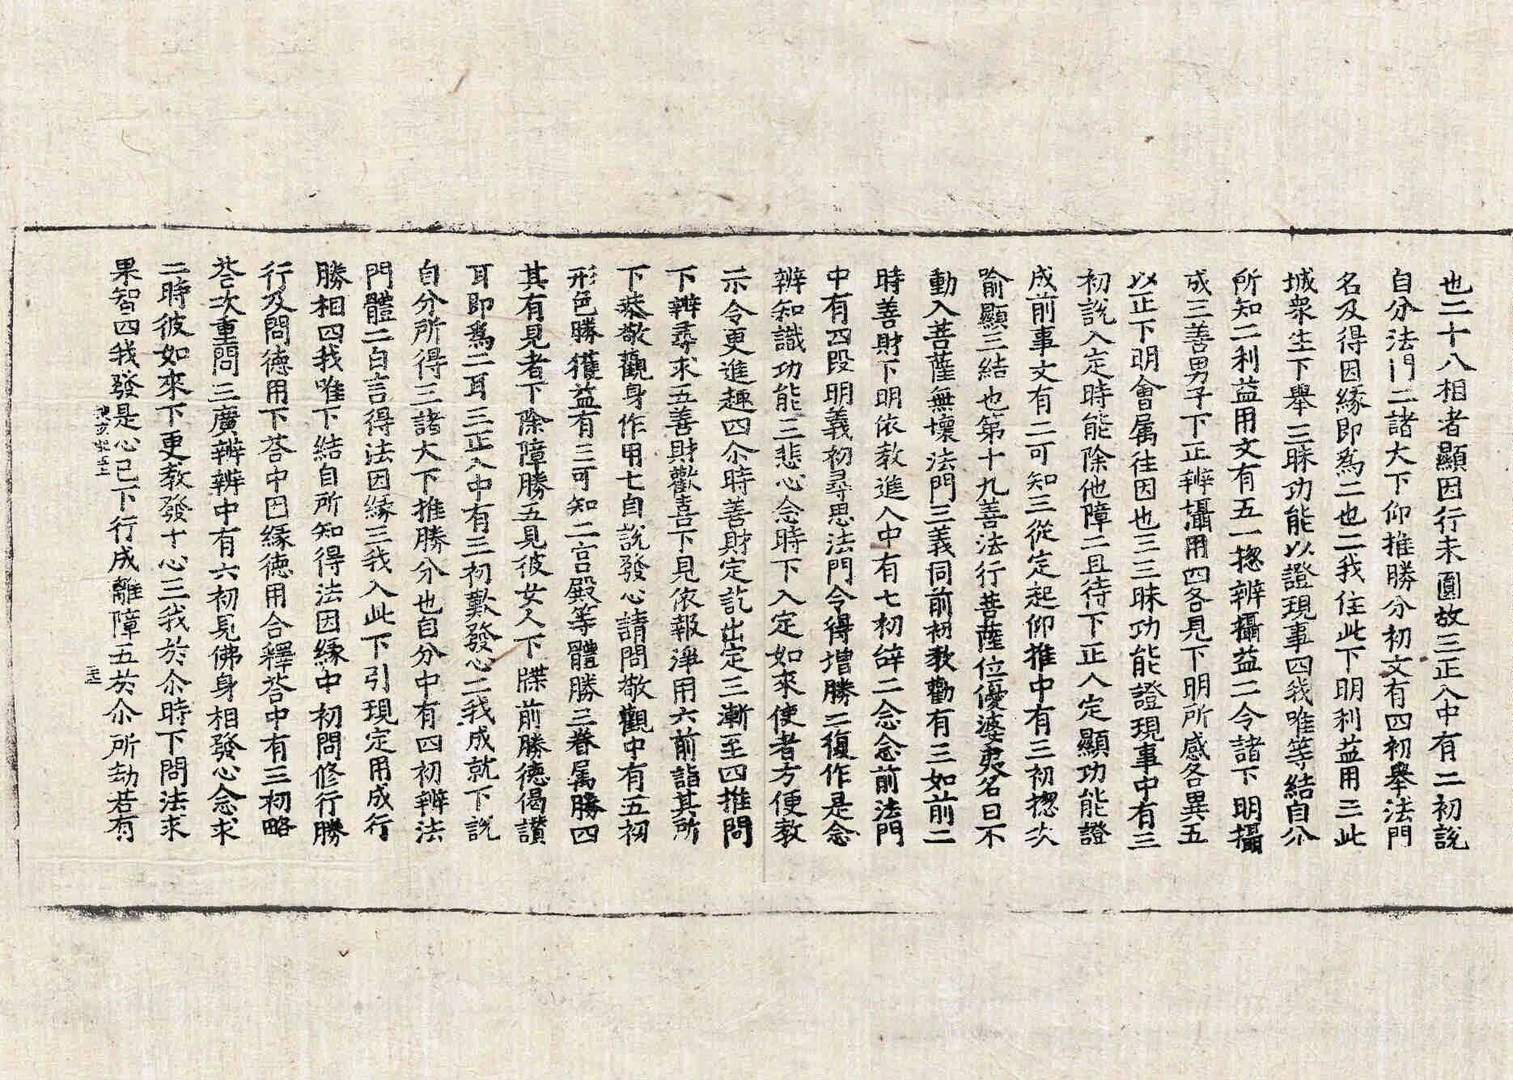 也二十八相者顯因行未圓故三正入中有二初說
自分法門二諸大下仰推勝分初文有四初舉法門
名及得因緣即爲二也二我住此下明利益用三此
城衆生下舉三昧功能以證現事四我唯等結自分
所知二利益用文有五一揔辨攝益二令諸下明攝
成三善男子下正辨攝用四各見下明所感各異五
以正下明會属往因也三三昧功能證現事中有三
初說入定時能除他障二且待下正入定顯功能證
成前事文有二可知三從定起仰推中有三初揔次
喻顯三結也第十九善法行菩薩位優婆夷名曰不
動入菩薩無壞法門三義同前初教勸有三如前二
時善財下明依教進入中有七初辝二念念前法門
中有四段明義初尋思法門令得增勝二復作是念
辨知識功能三悲心念時下入定如來使者方便教
示令更進趣四尒時善財定訖出定三漸至四推問
下辨尋求五善財歡喜下見依報淨用六前詣其所
下恭敬觀身作用七自說發心請問敬觀中有五初
形色勝獲益有三可知二宫殿等體勝三眷属勝四
其有見者下除障勝五見彼女人下牒前勝德偈讃
耳即爲二耳三正入中有三初歎發心二我成就下說
自分所得三諸大下推勝分也自分中有四初辨法
門體二自言得法因緣三我入此下引現定用成行
勝相四我唯下結自所知得法因緣中初問修行勝
行及問德用下荅中因緣德用合釋荅中有三初略
荅次重問三廣辨辨中有六初見佛身相發心念求
二時彼如來下更教發十心三我於尒時下問法求
果智四我發是心已下行成離障五於尒所劫若有